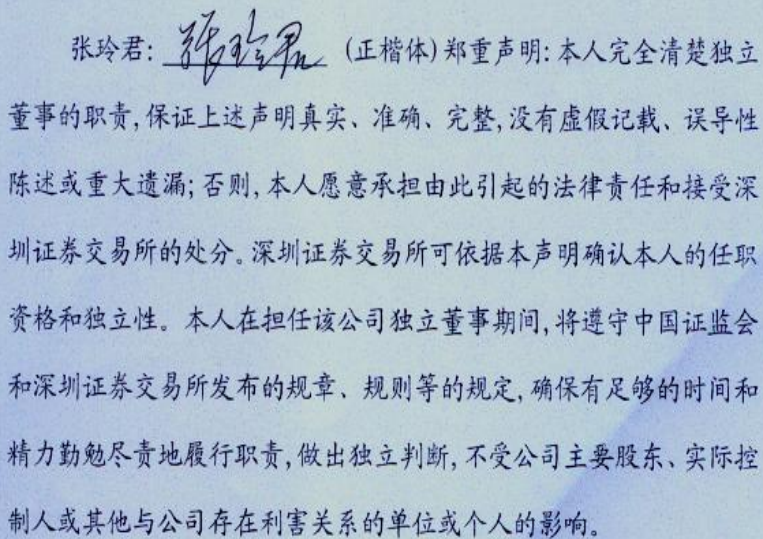 张玲君: 張玲君 (正楷体) 郑重声明: 本人完全清楚独立
董事的职责, 保证上述声明真实、准确、完整, 没有虚假记载、误导性
陈述或重大遗漏; 否则, 本人愿意承担由此引起的法律责任和接受深
圳证券交易所的处分。深圳证券交易所可依据本声明确认本人的任职
资格和独立性。本人在担任该公司独立董事期间, 将遵守中国证监会
和深圳证券交易所发布的规章、规则等的规定, 确保有足够的时间和
精力勤勉尽责地履行职责, 做出独立判断, 不受公司主要股东、实际控
制人或其他与公司存在利害关系的单位或个人的影响。